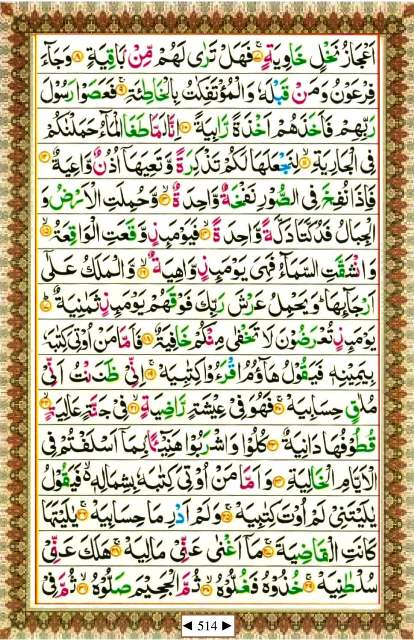 اَعۡجَازُ نَخۡلٍ خَاوِيَةٍ ۚ‏﴿۷﴾ فَهَلۡ تَرٰى لَهُمۡ مِّنۡۢ بَاقِيَةٍ‏﴿۸﴾ وَجَآءَ
فِرۡعَوۡنُ وَمَنۡ قَبۡلَهٗ وَالۡمُؤۡتَفِكٰتُ بِالۡخَـاطِئَةِ‌ۚ‏﴿۹﴾ فَعَصَوۡا رَسُوۡلَ
رَبِّهِمۡ فَاَخَذَهُمۡ اَخۡذَةً رَّابِيَةً‏﴿۱۰﴾ اِنَّا لَمَّا طَغَا الۡمَآءُ حَمَلۡنٰكُمۡ
فِى الۡجَارِيَةِ ۙ‏﴿۱۱﴾ لِنَجۡعَلَهَا لَـكُمۡ تَذۡكِرَةً وَّتَعِيَهَاۤ اُذُنٌ وَّاعِيَةٌ‏﴿۱۲﴾
فَاِذَا نُفِخَ فِى الصُّوۡرِ نَفۡخَةٌ وَّاحِدَةٌ ۙ‏﴿۱۳﴾ وَّحُمِلَتِ الۡاَرۡضُ وَ
الۡجِبَالُ فَدُكَّتَا دَكَّةً وَّاحِدَةً ۙ‏﴿۱۴﴾ فَيَوۡمَـئِذٍ وَّقَعَتِ الۡوَاقِعَةُ ۙ‏﴿۱۵﴾
وَانْشَقَّتِ السَّمَآءُ فَهِىَ يَوۡمَـئِذٍ وَّاهِيَةٌ ۙ‏﴿۱۶﴾ وَّالۡمَلَكُ عَلٰٓى
اَرۡجَآئِهَا ‌ؕ وَيَحۡمِلُ عَرۡشَ رَبِّكَ فَوۡقَهُمۡ يَوۡمَـئِذٍ ثَمٰنِيَةٌ ؕ‏﴿۱۷﴾
يَوۡمَـئِذٍ تُعۡرَضُوۡنَ لَا تَخۡفٰى مِنۡكُمۡ خَافِيَةٌ‏﴿۱۸﴾ فَاَمَّا مَنۡ اُوۡتِىَ كِتٰبَهٗ
بِيَمِيۡنِهٖۙ فَيَقُوۡلُ هَآؤُمُ اقۡرَءُوۡا كِتٰبِيَهۡ‌ۚ‏﴿۱۹﴾ اِنِّىۡ ظَنَنۡتُ اَنِّىۡ
مُلٰقٍ حِسَابِيَهۡ‌ۚ‏﴿۲۰﴾ فَهُوَ فِىۡ عِيۡشَةٍ رَّاضِيَةٍ ۙ‏﴿۲۱﴾ فِىۡ جَنَّةٍ عَالِيَةٍ ۙ‏﴿۲۲﴾
قُطُوۡفُهَا دَانِيَةٌ‏﴿۲۳﴾ كُلُوۡا وَاشۡرَبُوۡا هَنِيۡٓـئًا ۢ بِمَاۤ اَسۡلَفۡتُمۡ فِى
الۡاَيَّامِ الۡخَـالِيَةِ‏﴿۲۴﴾ وَاَمَّا مَنۡ اُوۡتِىَ كِتٰبَهٗ بِشِمَالِهٖ ۙ فَيَقُوۡلُ
يٰلَيۡتَنِىۡ لَمۡ اُوۡتَ كِتٰبِيَهۡ‌ۚ‏﴿۲۵﴾ وَلَمۡ اَدۡرِ مَا حِسَابِيَهۡ‌ۚ‏﴿۲۶﴾ يٰلَيۡتَهَا
كَانَتِ الۡقَاضِيَةَ‌ ۚ‏﴿۲۷﴾ مَاۤ اَغۡنٰى عَنِّىۡ مَالِيَهۡۚ‏﴿۲۸﴾ هَلَكَ عَنِّىۡ
سُلۡطٰنِيَهۡ‌ۚ‏﴿۲۹﴾ خُذُوۡهُ فَغُلُّوۡهُ ۙ‏﴿۳۰﴾ ثُمَّ الۡجَحِيۡمَ صَلُّوۡهُ ۙ‏﴿۳۱﴾ ثُمَّ فِىۡ
◄ 514 ►